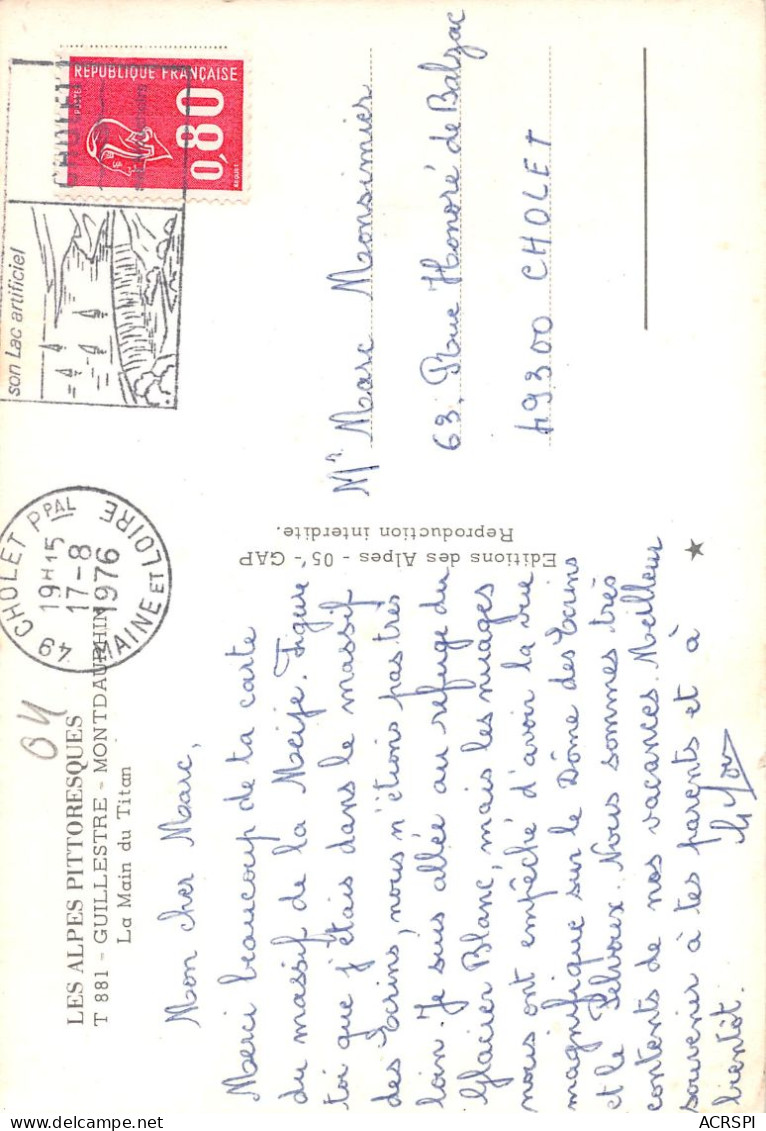 LES ALPES PITTORESQUES
T 881 - GUILLESTRE - MONTDAUPHIN
La Main du Titan
04
Mon cher Marc,
Merci beaucoup de ta carte
du massif de la Meije. Figure
toi que j'étais dans le massif
des Ecrins, nous n'étions pas très
loin. Je suis allée au refuge du
Glacier Blanc, mais les nuages
nous ont empêché d'avoir la vue
magnifique sur le Dôme des Ecrins
et le Pelvoux. Nous sommes très
contents de nos vacances. Meilleur
souvenir à tes parents et à
bientôt.
Editions des Alpes - 05 - GAP
Reproduction interdite.
49 CHOLET PPAL
19H15
17-8
1976
MAINE ET LOIRE
CHOLET
son Lac artificiel
REPUBLIQUE FRANÇAISE
POSTES
0,80
Mr Marc Monsimier
63, Rue Honoré de Balzac
49300 CHOLET
ACRSPI